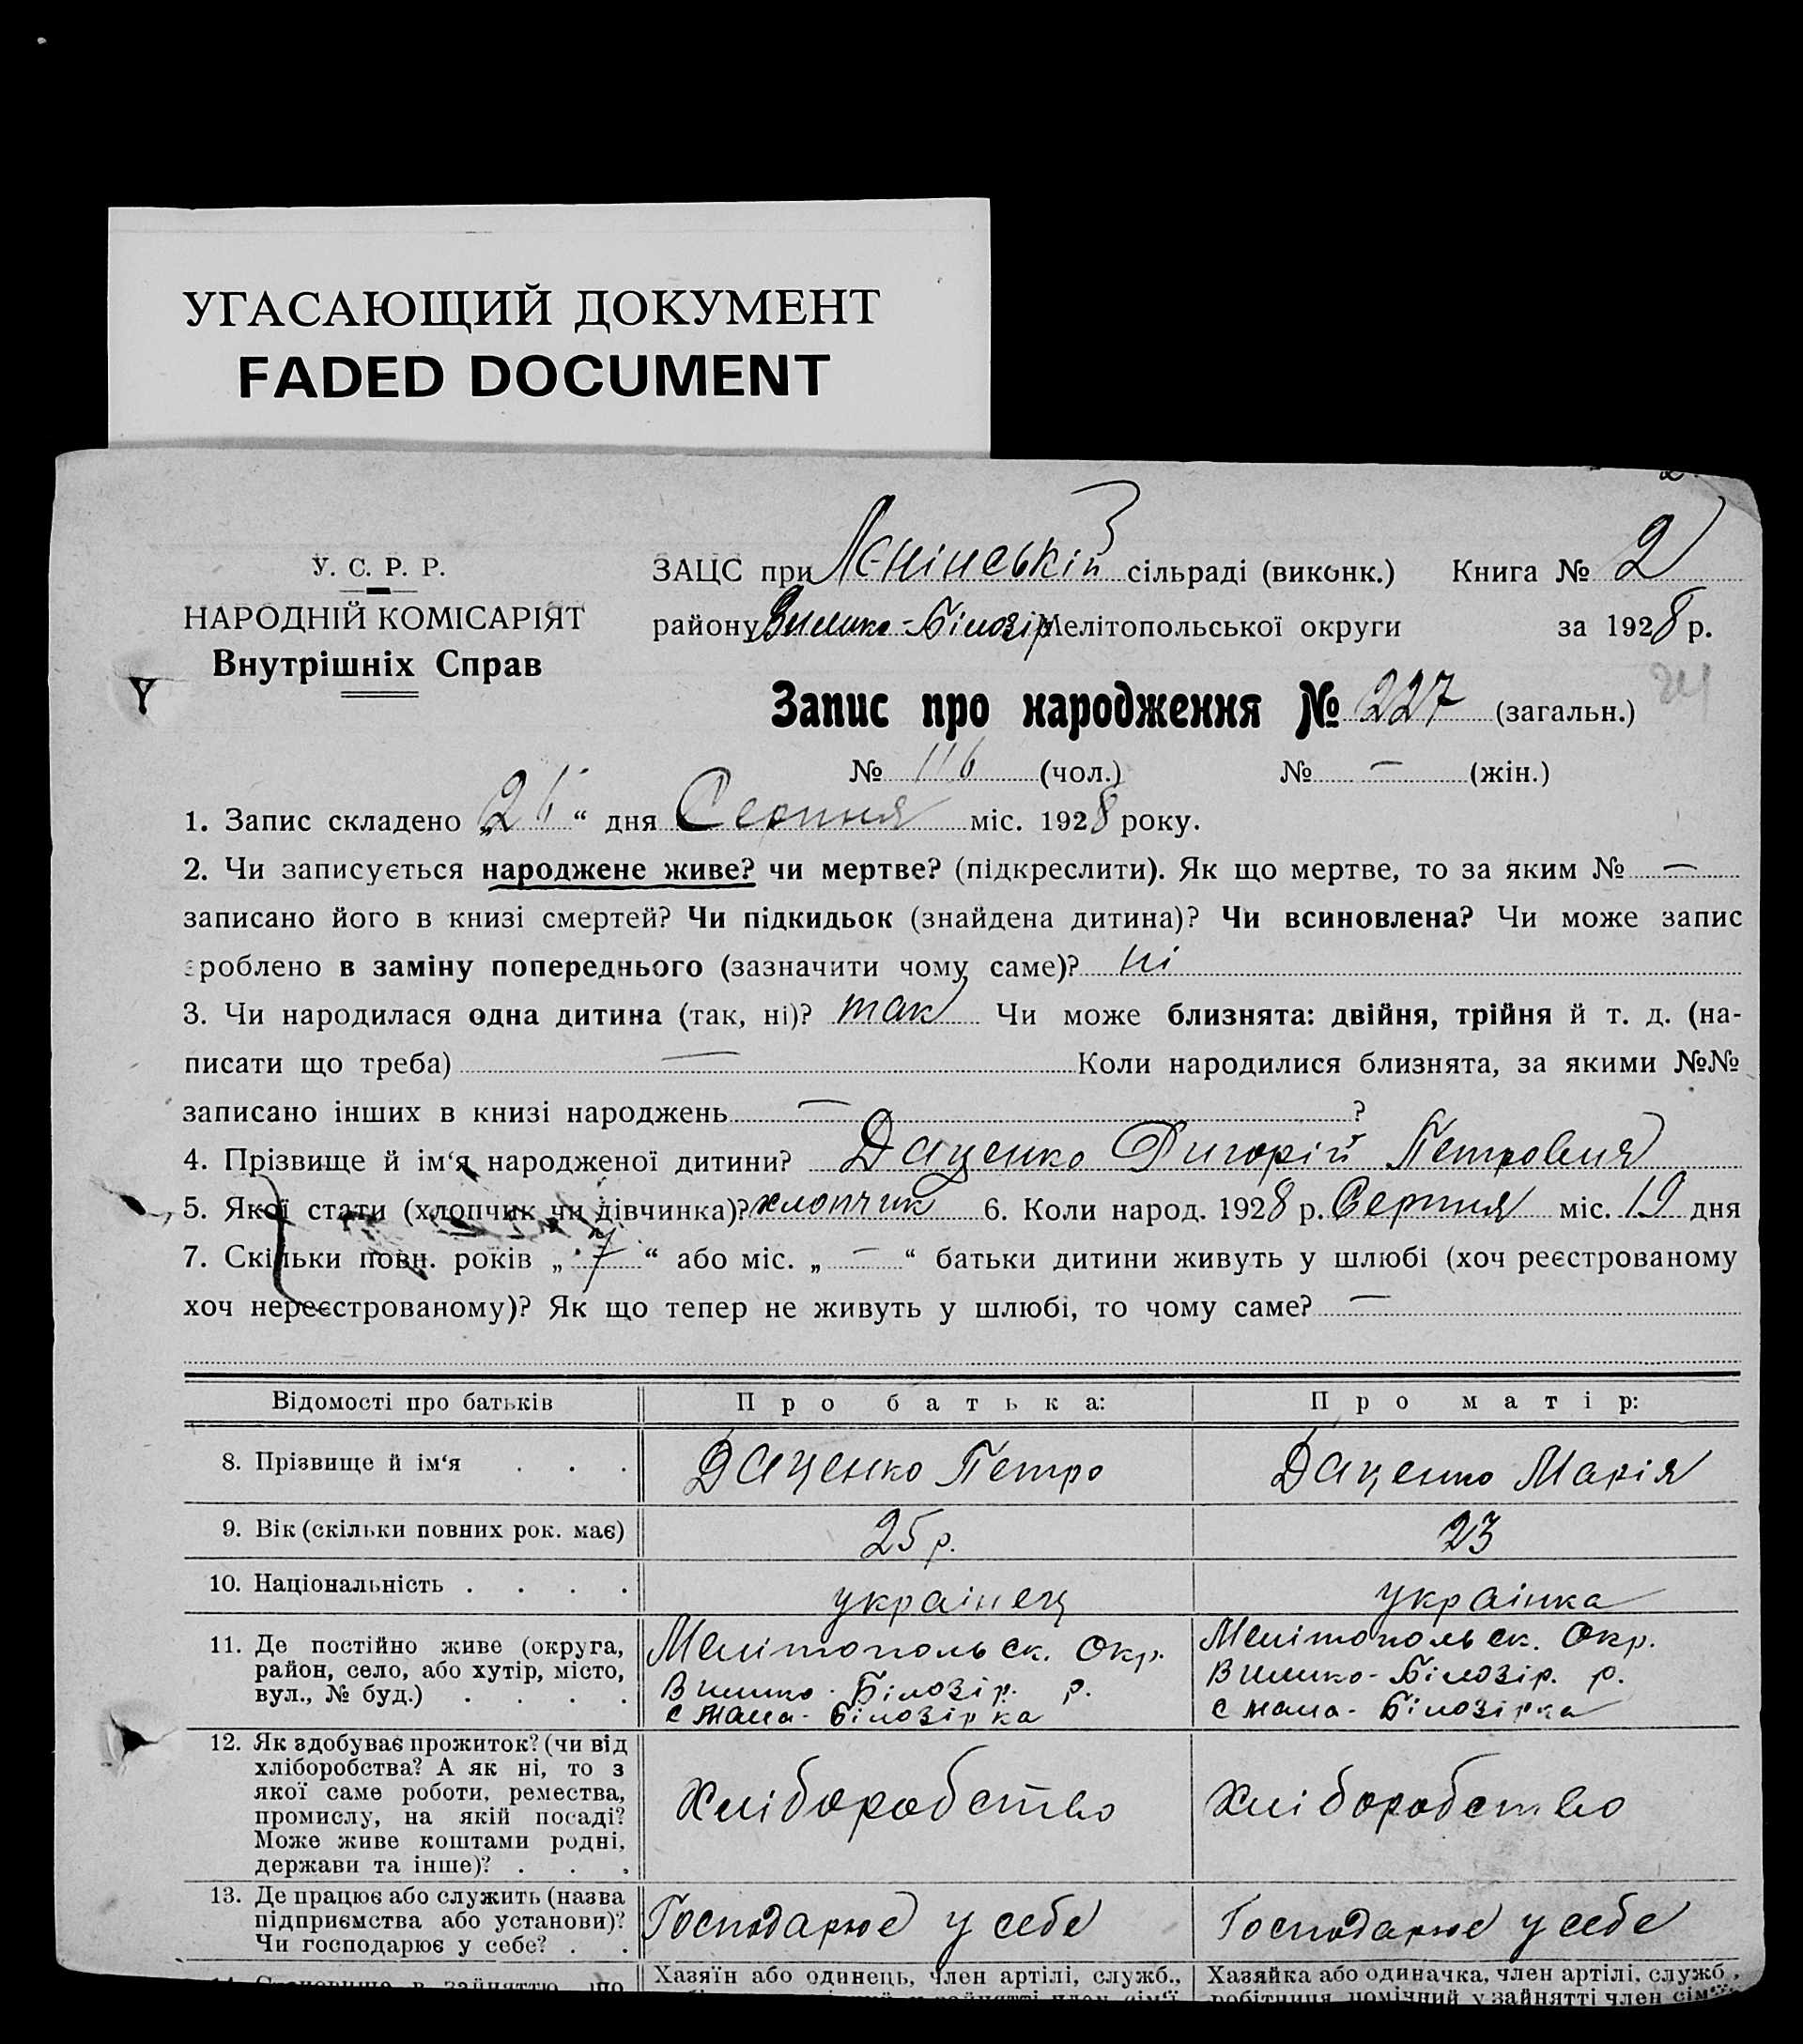 УГАСАЮЩИЙ ДОКУМЕНТ
FADED DOCUMENT
У. С. Р. Р.
НАРОДНІЙ КОМІСАРІЯТ
Внутрішніх Справ
ЗАЦС при Лєнінській сільраді (виконк.) Книга № 2
району Велико-Білозір Мелітопольської округи за 1928 р.
Запис про народження № 227 (загальн.)
№ 116 (чол.) № — (жін.)
1. Запис складено „26“ дня Серпня міс. 1928 року.
2. Чи записується народжене живе? чи мертве? (підкреслити). Як що мертве, то за яким № —
записано його в книзі смертей? Чи підкидьок (знайдена дитина)? Чи всиновлена? Чи може запис
зроблено в заміну попереднього (зазначити чому саме)? ні
3. Чи народилася одна дитина (так, ні)? так Чи може близнята: двійня, трійня й т. д. (на-
писати що треба) — Коли народилися близнята, за якими №№
записано інших в книзі народжень — ?
4. Прізвище й ім‘я народженої дитини? Даценко Григорій Петрович
5. Якої стати (хлопчик чи дівчинка)? хлопчик 6. Коли народ. 1928 р. Серпня міс. 19 дня
7. Скільки повн. років „7“ або міс. „—“ батьки дитини живуть у шлюбі (хоч реєстрованому
хоч нереєстрованому)? Як що тепер не живуть у шлюбі, то чому саме? —
Відомості про батьків Про батька: Про матір:
8. Прізвище й ім‘я . . . Даценко Петро Даценко Марія
9. Вік (скільки повних рок. має) 25 р. 23
10. Національність . . . . українец українка
11. Де постійно живе (округа,
район, село, або хутір, місто,
вул., № буд.) . . . .
Мелітопольск. Окр.
Велико-Білозір. р.
с Мала-Білозірка
Мелітопольск. Окр.
Велико-Білозір. р.
с Мала-Білозірка
12. Як здобуває прожиток? (чи від
хліборобства? А як ні, то з
якої саме роботи, ремества,
промислу, на якій посаді?
Може живе коштами родні,
держави та інше)? . . .
Хліборобство
Хліборобство
13. Де працює або служить (назва
підприємства або установи)?
Чи господарює у себе? . .
Господарює у себе
Господарює у себе
Хазяїн або одинець, член артілі, служб.,
Хазяйка або одиначка, член артілі, служб.,
робітниця, помічний у зайнятті член сім‘ї